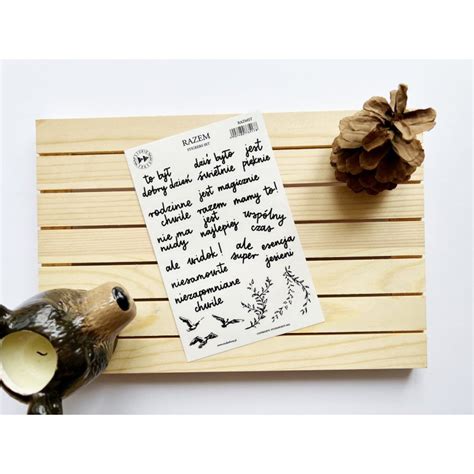 RAZEM
STICKERS SET
to był dobry dzień
dziś było świetnie
jest pięknie
rodzinne chwile
jest magicznie
nie ma nudy
razem jest najlepiej
mamy to!
wspólny czas
ale widok!
ale super
esencja jesieni
niesamowite
niezapomniane chwile